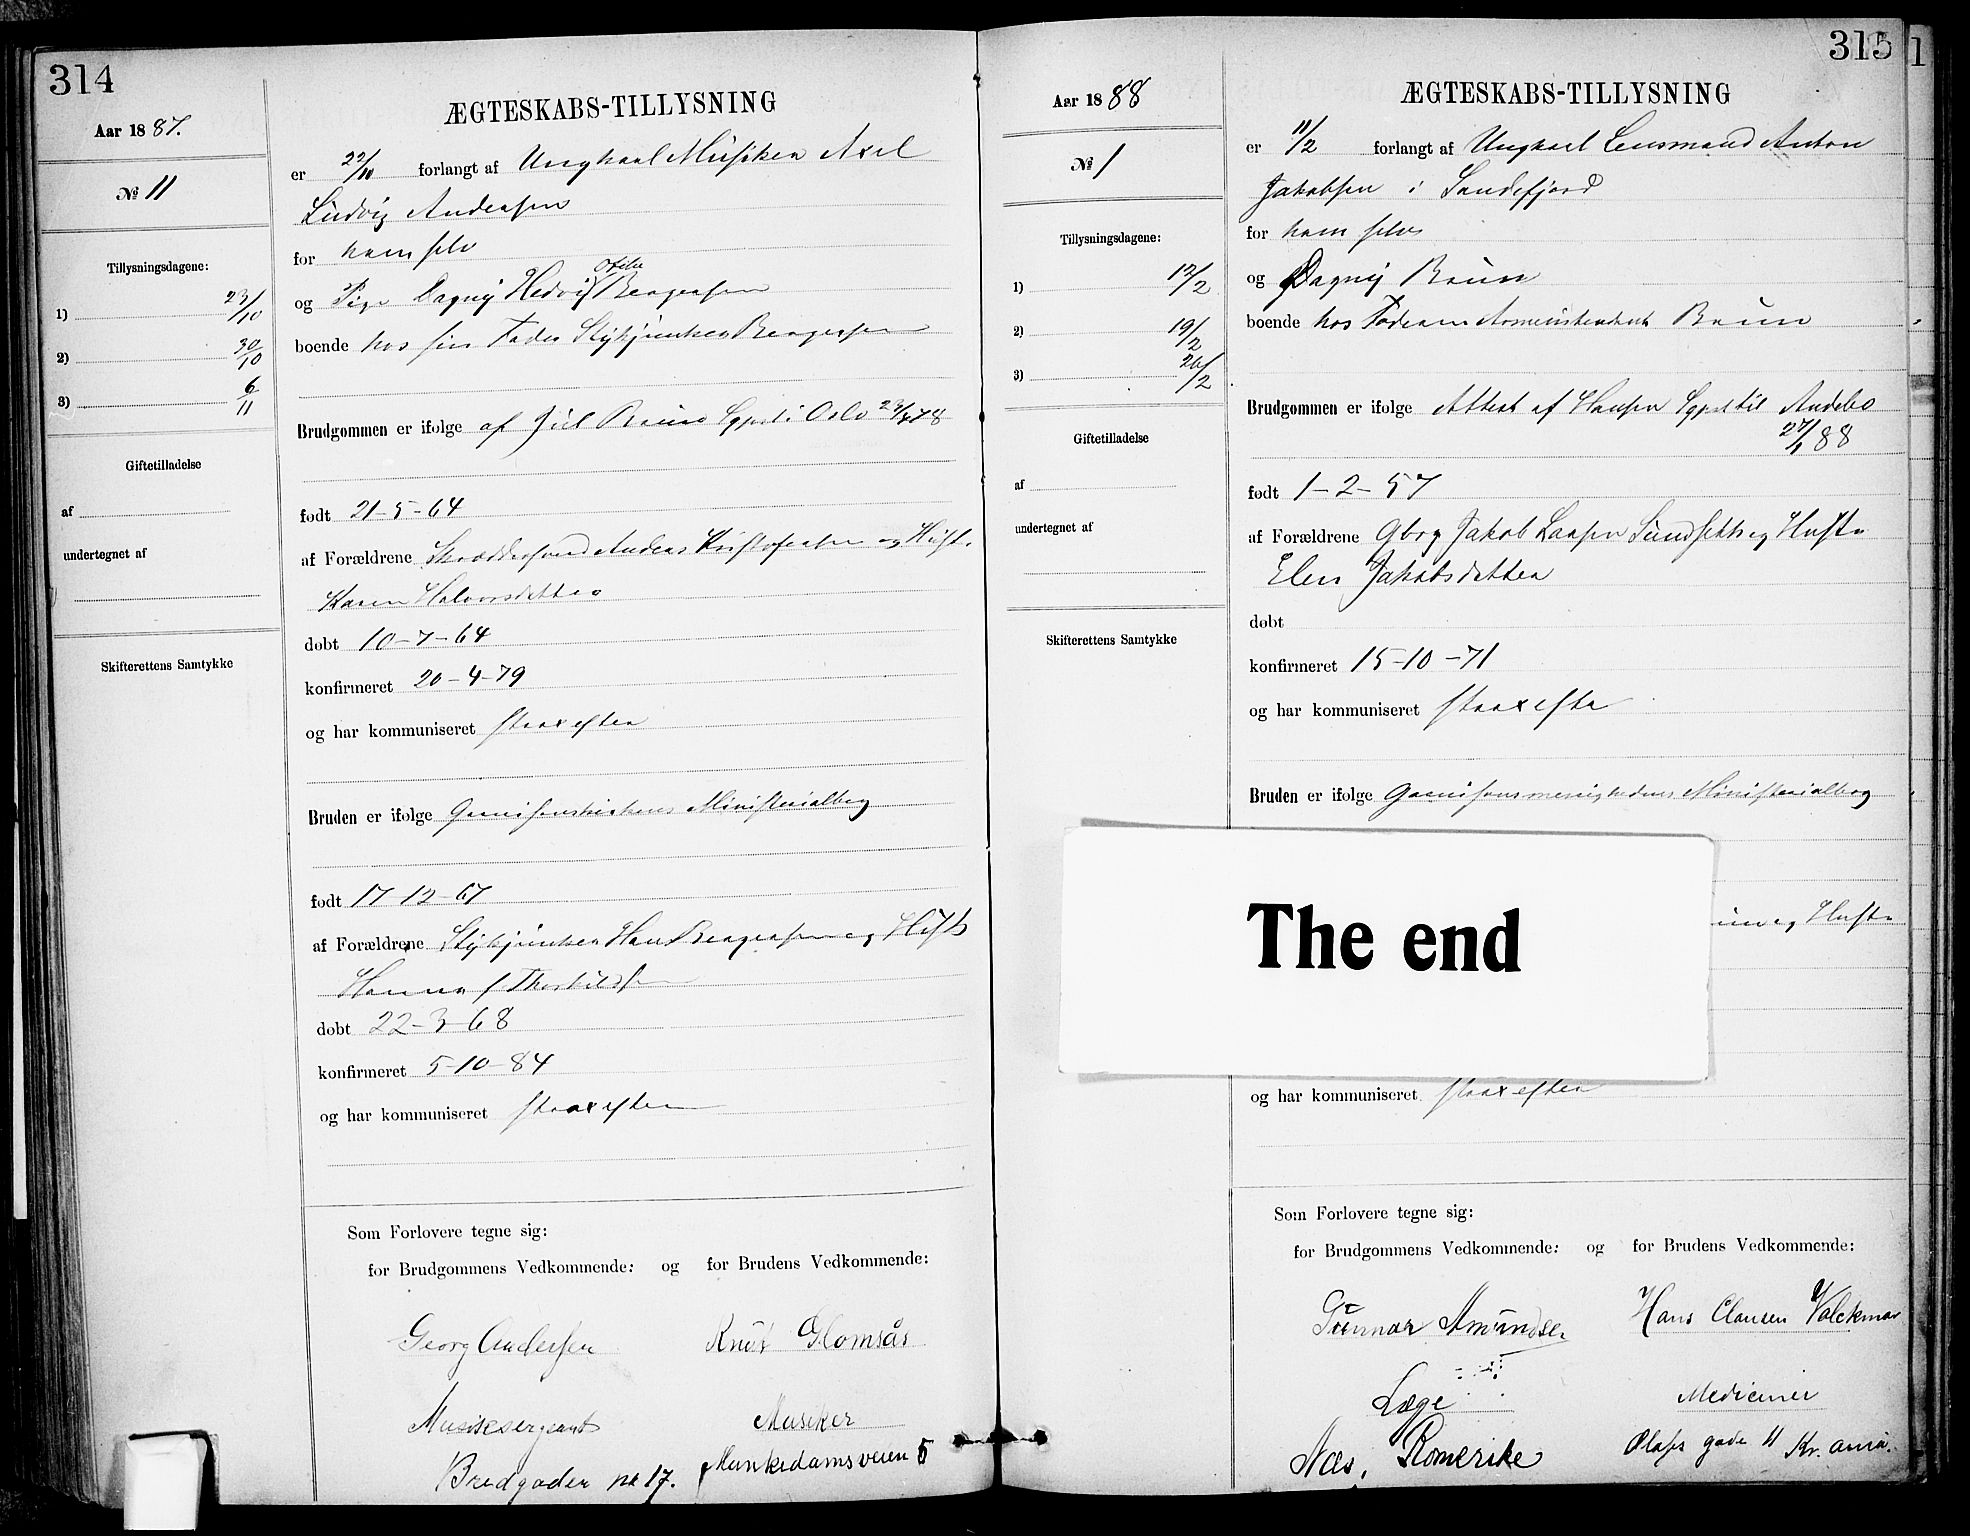 314
Aar 1887.
№ 11
Tillysningsdagene:
1) 23/10
2) 30/10
3) 6/11
Giftetilladelse
af
undertegnet af
Skifterettens Samtykke
ÆGTESKABS-TILLYSNING
er 22/10 forlangt af Ungkarl Musiker Axel
Ludvig Andersen
for ham selv
og Pige Dagny Hedvig Bergersen
boende hos sin Fader Stykjunker Bergersen
Brudgommen er ifølge af Juel Bruun Sypst i Oslo 78
født 21-5-64
af Forældrene Skræddersvend Anders Kristofersen og Hust.
Karen Halvorsdatter
døbt 10-7-64
konfirmeret 20-4-79
og har kommuniseret strax efter
Bruden er ifølge Garnisonskirkens Ministerialbog
født 17-12-67
af Forældrene Stykjunker Hans Bergersen og Hust
Hanna f Thorkildsen
døbt 22-3-68
konfirmeret 5-10-84
og har kommuniseret strax efter
Som Forlovere tegne sig:
for Brudgommens Vedkommende: og for Brudens Vedkommende:
Georg Andersen Knut Glomsås
Musiksergeant Musiker
Bredgaden nr 17. Munkedamsveien 5
315
1
Aar 1888
№ 1
Tillysningsdagene:
1) 12/2
2) 19/2
3) 26/2
Giftetilladelse
af
undertegnet af
Skifterettens Samtykke
ÆGTESKABS-TILLYSNING
er 11/2 forlangt af Ungkarl Lensmand Anton
Jakobsen i Sandefjord
for ham selv
og Dagny Bruun
boende hos Faderen Bruun
Brudgommen er ifølge Attest af Hansen Sypst til Andebo
27/1 88
født 1-2-57
af Forældrene Gbrg Jakob Larsen Sundset og Hustru
Elen Jakobsdatter
døbt
konfirmeret 15-10-71
og har kommuniseret strax efter
Bruden er ifølge Garnisonsmenighedens Ministerialbog
The end
og Hustru
og har kommuniseret strax efter
Som Forlovere tegne sig:
for Brudgommens Vedkommende: og for Brudens Vedkommende:
Gunnar Amundsen Hans Clausen Volckmar
Læge Mediciner
Næs, Romerike Olafs gade 11 Kr.ania.